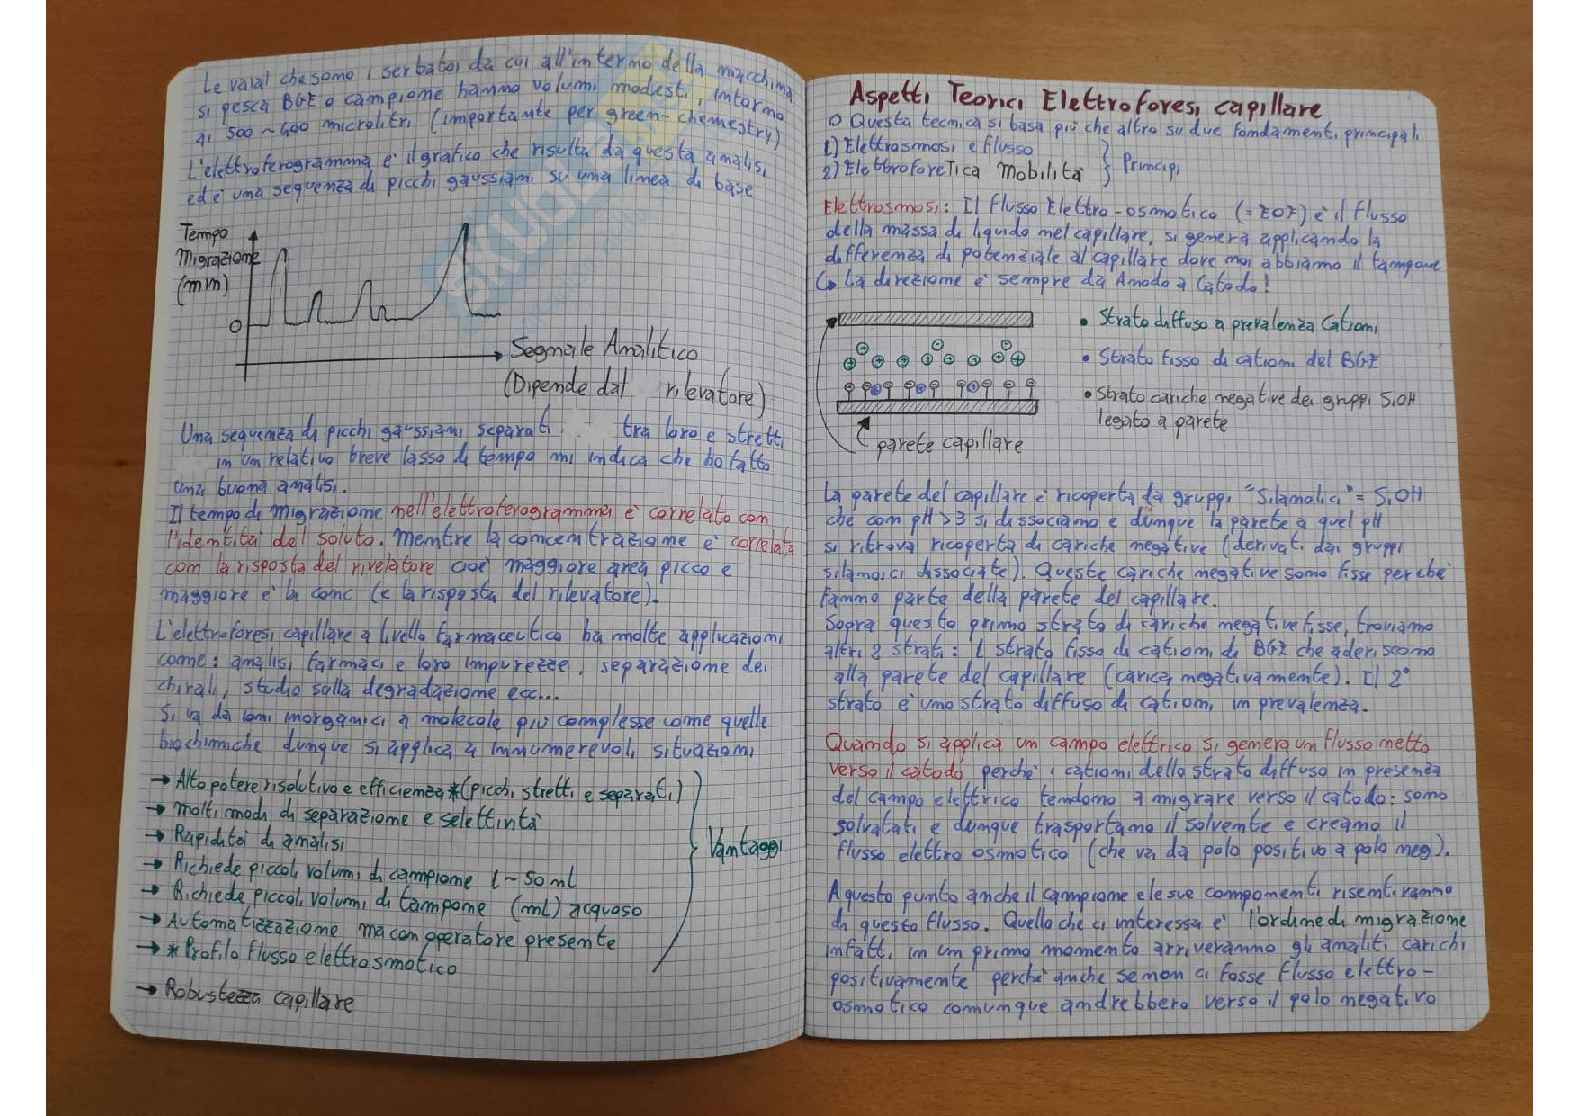 Le vaial che sono i serbatoi da cui all'interno della macchina
si pesca BGE o campione hanno volumi modesti, intorno
ai 500 ~ 400 microlitri (importante per green-chemestry)
L'elettroferogramma è il grafico che risulta da questa analisi
ed è una sequenza di picchi gaussiani su una linea di base
Tempo
Migrazione
(min)
0
Segnale Analitico
(Dipende dal rilevatore)
Una sequenza di picchi gaussiani separati tra loro e stretti
in un relativo breve lasso di tempo mi indica che ho fatto
una buona analisi.
Il tempo di migrazione nell'elettroferogramma è correlato con
l'identità del soluto. Mentre la concentrazione è correlata
con la risposta del rivelatore cioè maggiore area picco e
maggiore è la conc (e la risposta del rilevatore).
L'elettroforesi capillare a livello farmaceutico ha molte applicazioni
come: analisi farmaci e loro impurezze, separazione dei
chirali, studio sulla degradazione ecc...
Si va da ioni inorganici a molecole più complesse come quelle
biochimiche dunque si applica a innumerevoli situazioni
→ Alto potere risolutivo e efficienza *(picchi stretti e separati)
→ Molti modi di separazione e selettività
→ Rapidità di analisi
→ Richiede piccoli volumi di campione 1-50 nL
→ Richiede piccoli volumi di tampone (mL) acquoso
→ Automatizzazione ma con operatore presente
→ *Profilo flusso elettrosmotico
→ Robustezza capillare
Vantaggi
Aspetti Teorici Elettroforesi capillare
O Questa tecnica si basa più che altro su due fondamenti principali
1) Elettrosmosi e flusso
2) Elettroforetica Mobilità
Principi
Elettrosmosi: Il flusso Elettro-osmotico (=EOF) è il flusso
della massa di liquido nel capillare, si genera applicando la
differenza di potenziale al capillare dove noi abbiamo il tampone
↳ La direzione è sempre da Anodo a Catodo!
• Strato diffuso a prevalenza Cationi
• Strato fisso di cationi del BGE
• Strato cariche negative dei gruppi SiOH
legato a parete
parete capillare
La parete del capillare è ricoperta da gruppi "Silanolici" = SiOH
che con pH >3 si dissociano e dunque la parete a quel pH
si ritrova ricoperta di cariche negative (derivati dai gruppi
silanoici dissociate). Queste cariche negative sono fisse perché
fanno parte della parete del capillare.
Sopra questo primo strato di cariche negative fisse, troviamo
altri 2 strati: 1 strato fisso di cationi di BGE che aderiscono
alla parete del capillare (carica negativamente). Il 2°
strato è uno strato diffuso di cationi in prevalenza.
Quando si applica un campo elettrico si genera un flusso netto
verso il catodo, perché i cationi dello strato diffuso in presenza
del campo elettrico tendono a migrare verso il catodo: sono
solvatati e dunque trasportano il solvente e creano il
flusso elettro osmotico (che va da polo positivo a polo neg).
A questo punto anche il campione e le sue componenti risentiranno
di questo flusso. Quello che ci interessa è l'ordine di migrazione
infatti in un primo momento arriveranno gli analiti carichi
positivamente perché anche se non ci fosse flusso elettro-
osmotico comunque andrebbero verso il polo negativo